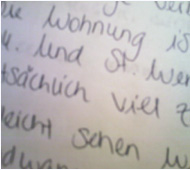 Wohnung is
u. und St. Wer
tsächlich viel z
leicht sehen w
dwar